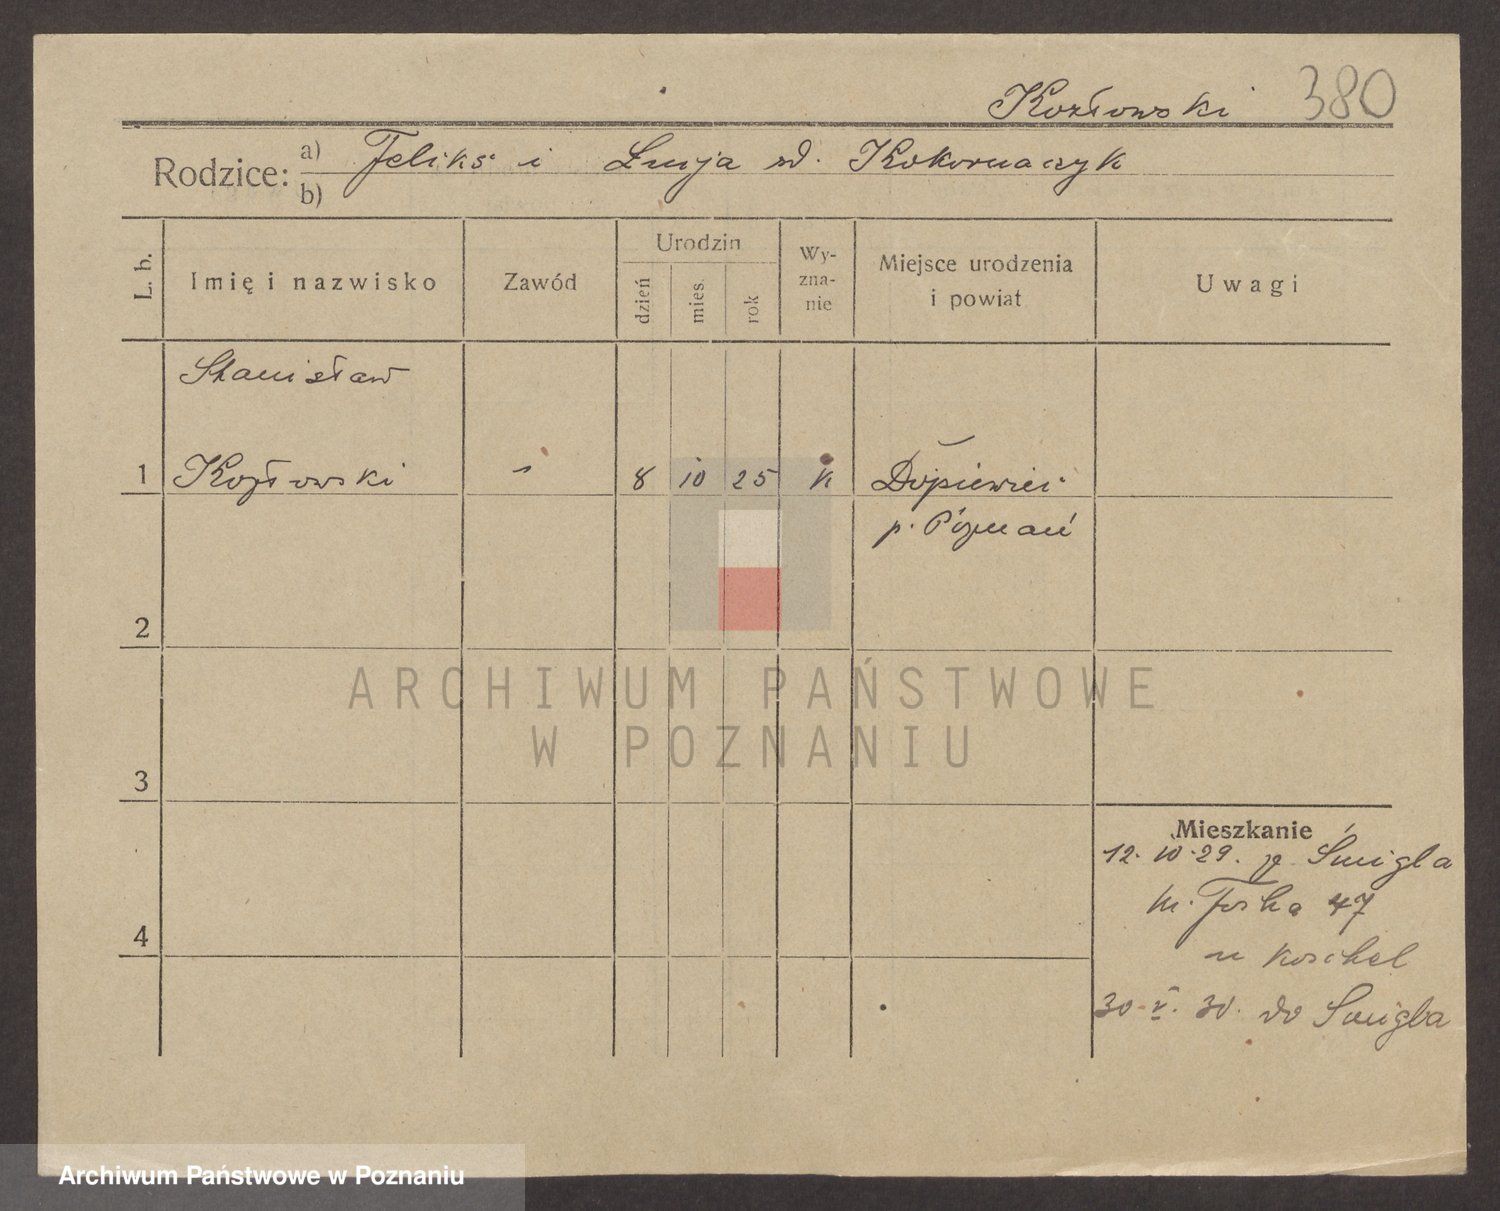 Kozłowski 380
Rodzice: a) Feliks i Łucja zd. Kokornaczyk
b)
L. b.
Imię i nazwisko
Zawód
Urodzin
dzień
mies.
rok
Wy-
zna-
nie
Miejsce urodzenia
i powiat
Uwagi
Stanisław
1 Kozłowski " 8 10 25 k Dopiewiec
p. Poznań
2
ARCHIWUM PAŃSTWOWE
W POZNANIU
3
Mieszkanie
12. 10. 29. ze Śmigla
m. 47
4
u Koschel
30. V. 30. do Śmigla
Archiwum Państwowe w Poznaniu